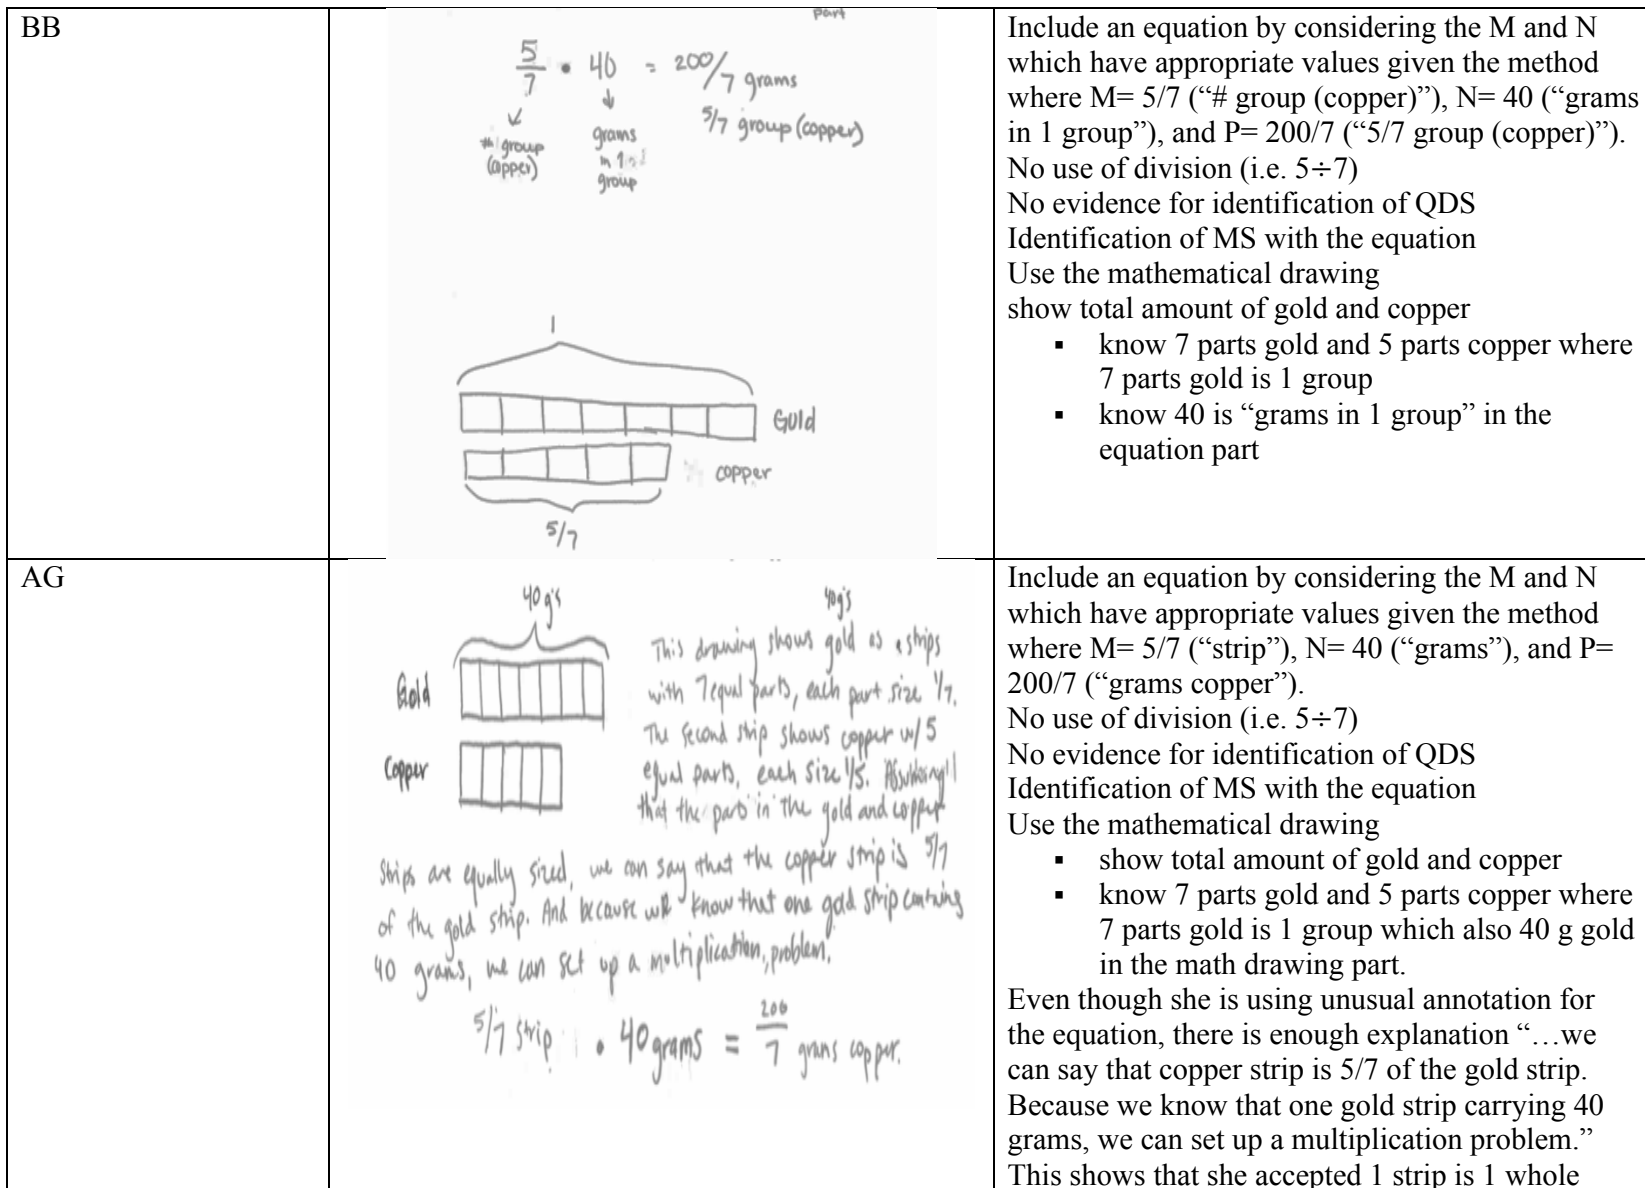 BB
part
5/7 • 40 = 200/7 grams
5/7 group (copper)
# group
(copper)
grams
in 1
group
1
Gold
copper
5/7
Include an equation by considering the M and N
which have appropriate values given the method
where M= 5/7 (“# group (copper)”), N= 40 (“grams
in 1 group”), and P= 200/7 (“5/7 group (copper)”).
No use of division (i.e. 5÷7)
No evidence for identification of QDS
Identification of MS with the equation
Use the mathematical drawing
show total amount of gold and copper
▪ know 7 parts gold and 5 parts copper where
7 parts gold is 1 group
▪ know 40 is “grams in 1 group” in the
equation part
AG
40 g's
Gold
Copper
40g's
This drawing shows gold as a strips
with 7 equal parts, each part size 1/7.
The second strip shows copper w/ 5
equal parts, each size 1/5. Assuming
that the parts in the gold and copper
strips are equally sized, we can say that the copper strip is 5/7
of the gold strip. And because we know that one gold strip contains
40 grams, we can set up a multiplication problem.
5/7 strip • 40 grams = 200/7 grams copper.
Include an equation by considering the M and N
which have appropriate values given the method
where M= 5/7 (“strip”), N= 40 (“grams”), and P=
200/7 (“grams copper”).
No use of division (i.e. 5÷7)
No evidence for identification of QDS
Identification of MS with the equation
Use the mathematical drawing
▪ show total amount of gold and copper
▪ know 7 parts gold and 5 parts copper where
7 parts gold is 1 group which also 40 g gold
in the math drawing part.
Even though she is using unusual annotation for
the equation, there is enough explanation “…we
can say that copper strip is 5/7 of the gold strip.
Because we know that one gold strip carrying 40
grams, we can set up a multiplication problem.”
This shows that she accepted 1 strip is 1 whole